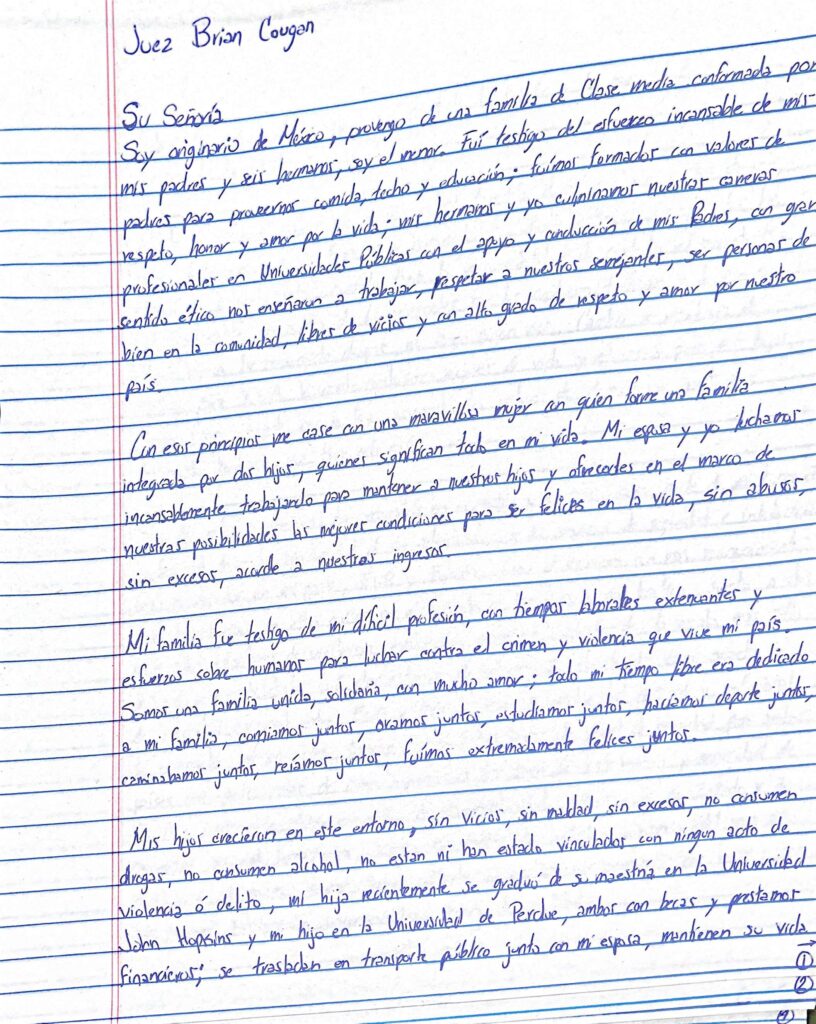 Juez Brian Cougan
Su Señoría
Soy originario de México, provengo de una familia de Clase media conformada por
mis padres y seis hermanos, soy el menor. Fuí testigo del esfuerzo incansable de mis
padres para proveernos comida, techo y educación; fuímos formados con valores de
respeto, honor y amor por la vida; mis hermanos y yo culminamos nuestras carreras
profesionales en Universidades Públicas con el apoyo y conducción de mis Padres, con gran
sentido ético nos enseñaron a trabajar, respetar a nuestros semejantes, ser personas de
bien en la comunidad, libres de vicios y con alto grado de respeto y amor por nuestro
país.
Con esos principios me case con una maravillosa mujer con quien forme una familia
integrada por dos hijos, quienes significan todo en mi vida. Mi esposa y yo luchamos
incansablemente trabajando para mantener a nuestros hijos y ofrecerles en el marco de
nuestras posibilidades las mejores condiciones para ser felices en la vida, sin abusos,
sin excesos, acorde a nuestros ingresos.
Mi familia fue testigo de mi difícil profesión, con tiempos laborales extenuantes y
esfuerzos sobre humanos para luchar contra el crimen y violencia que vive mi país.
Somos una familia unida, solidaria, con mucho amor; todo mi tiempo libre era dedicado
a mi familia, comíamos juntos, oramos juntos, estudiamos juntos, hacíamos deporte juntos,
caminabamos juntos, reíamos juntos, fuímos extremadamente felices juntos.
Mis hijos crecieron en este entorno, sin vicios, sin maldad, sin excesos, no consumen
drogas, no consumen alcohol, no estan ni han estado vinculados con ningun acto de
violencia ó delito, mi hija recientemente se graduó de su maestría en la Universidad
John Hopkins y mi hijo en la Universidad de Perdue, ambos con becas y prestamos
financieros; se trasladan en transporte público junto con mi esposa, mantienen su vida
→
①
②